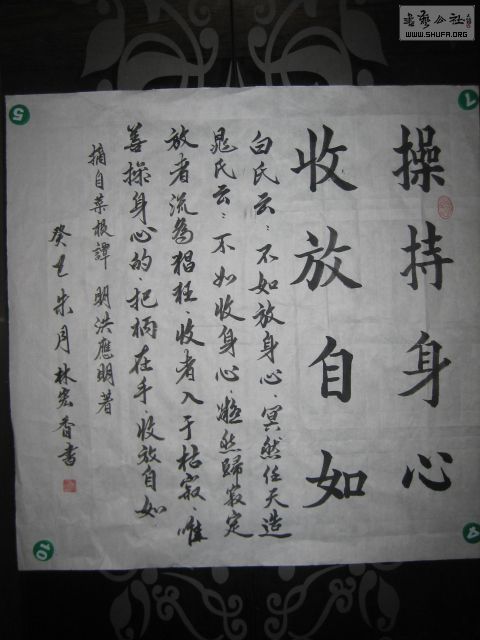 操持身心
收放自如
白氏云：不如放身心，冥然任天造
晁氏云：不如收身心，凝然歸寂定
放者流為猖狂，收者入于枯寂，唯
善操身心的把柄在手，收放自如
摘自菜根譚 明洪應明著
癸巳朱月林宏香書
書藝公社
WWW.SHUFA.ORG
7
5
4
10